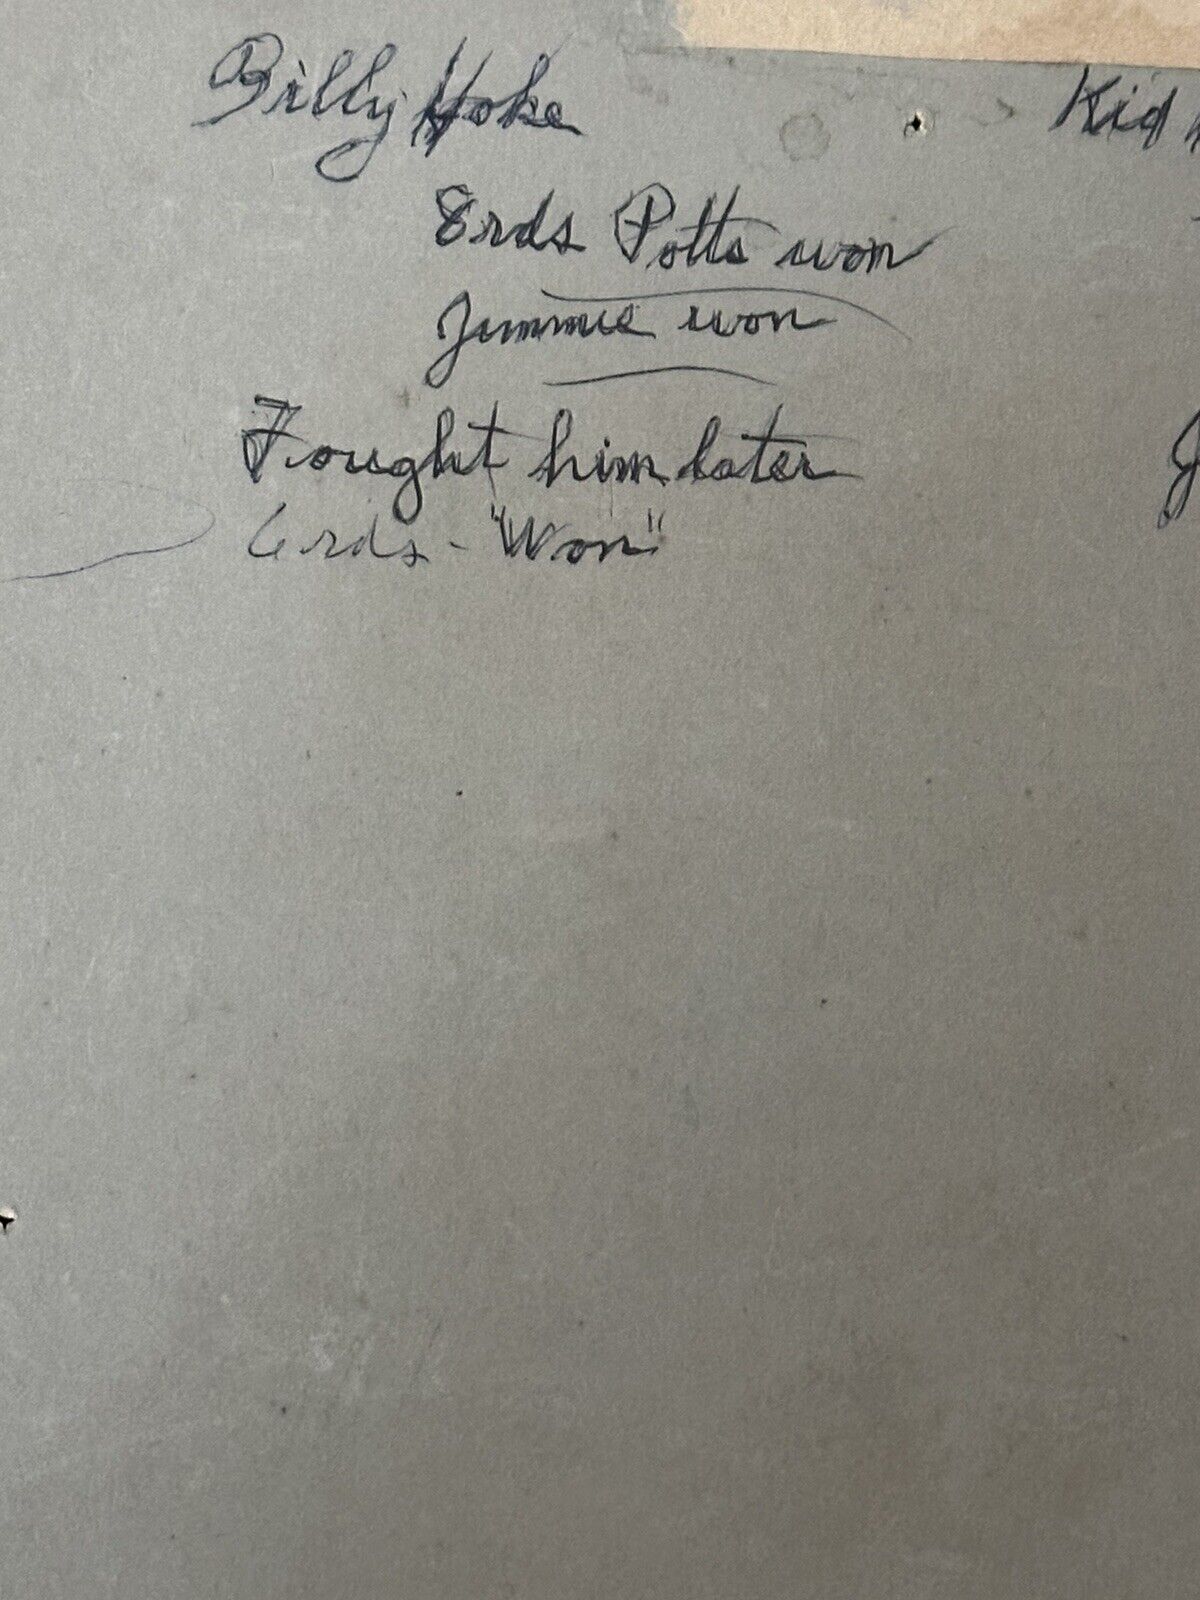 Billy Hoke
Kid
8rds Potts won
Jimmie won
Fought him later
6rds - "Won"
J